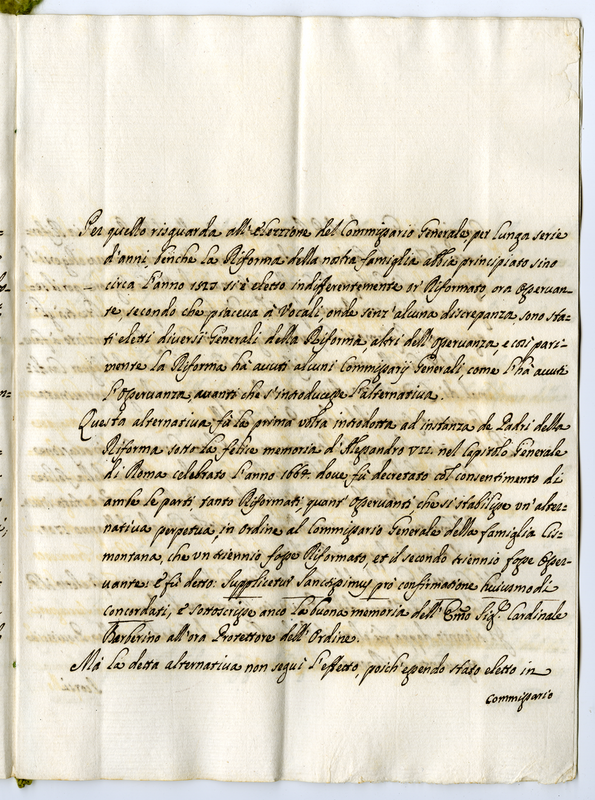 Per quello risguarda all'elezzione del Commissario Generale, per lunga serie
d'anni, benche la Riforma della nostra famiglia abbia principiato sino
circa l'anno 1527 si è eletto indifferentemente or Riformato, ora Osservan-
te, secondo che piaceva à Vocali, onde senz'alcuna discrepanza, sono sta-
ti eletti diversi Generali della Riforma, altri dell'Osservanza, e così pari-
mente la Riforma hà avuti alcuni Commissarij Generali, come l'hà avuti
l'Osservanza, avanti che s'introducesse l'alternativa.
Questa alternativa fù la prima volta introdotta ad instanza de Padri della
Riforma sotto la felice memoria d'Alessandro VII. nel Capitolo Generale
di Roma celebrato l'anno 1664. dove fù decretato col consentimento di
ambe le parti, tanto Riformati, quant'Osservanti che si stabilisse un'alter-
nativa perpetua, in ordine al Commissario Generale della famiglia Cis-
montana, che un triennio fosse Riformato, et il secondo triennio fosse Osser-
vante: è fù detto: Supplicetur Sanctissimus pro confirmatione huiusmodi
concordati, è sottoscrisse anco la buona memoria dell'Emo Sig.r Cardinale
Barberino all'ora Protettore dell'Ordine.
Mà la detta alternativa non seguì l'effetto, poich'essendo stato eletto in
Commissario